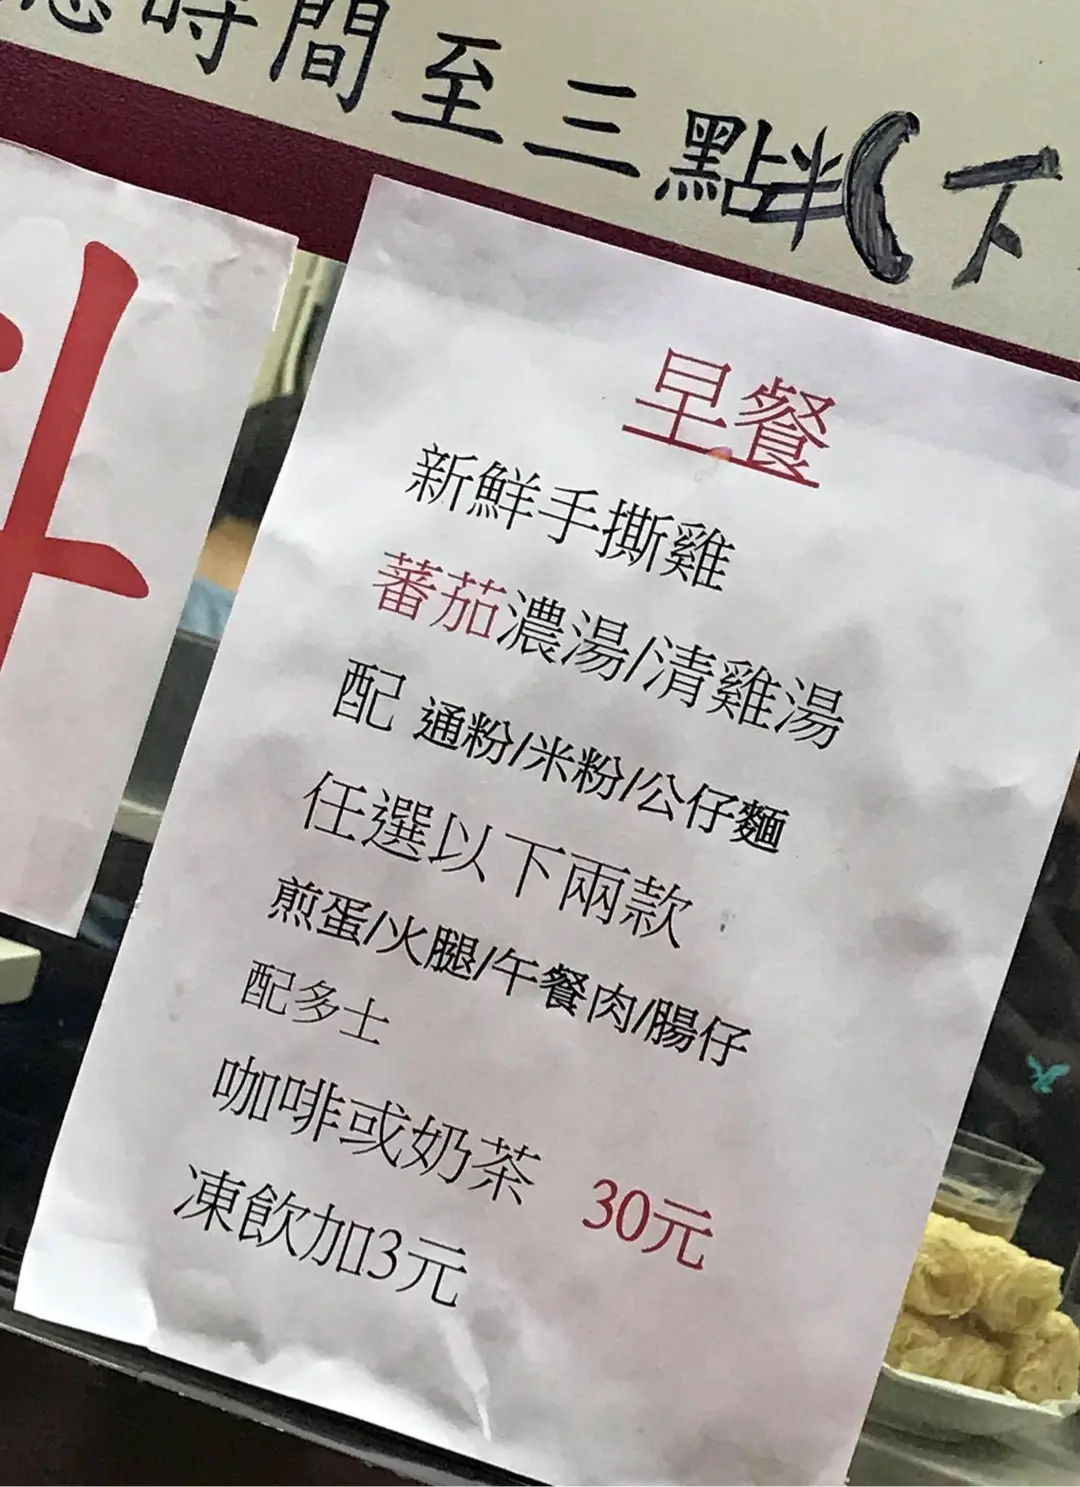 時間至三點半(下
早餐
新鮮手撕雞
蕃茄濃湯/清雞湯
配 通粉/米粉/公仔麵
任選以下兩款
煎蛋/火腿/午餐肉/腸仔
配多士
咖啡或奶茶 30元
凍飲加3元